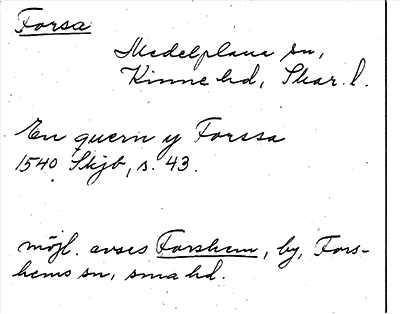 Forsa
Medelplana sn,
Kinne hd, Skar. l.
En quern y Forssa
1540 Skjb, s. 43.
möjl. avses Forshem, by, Fors-
hems sn, sma hd.